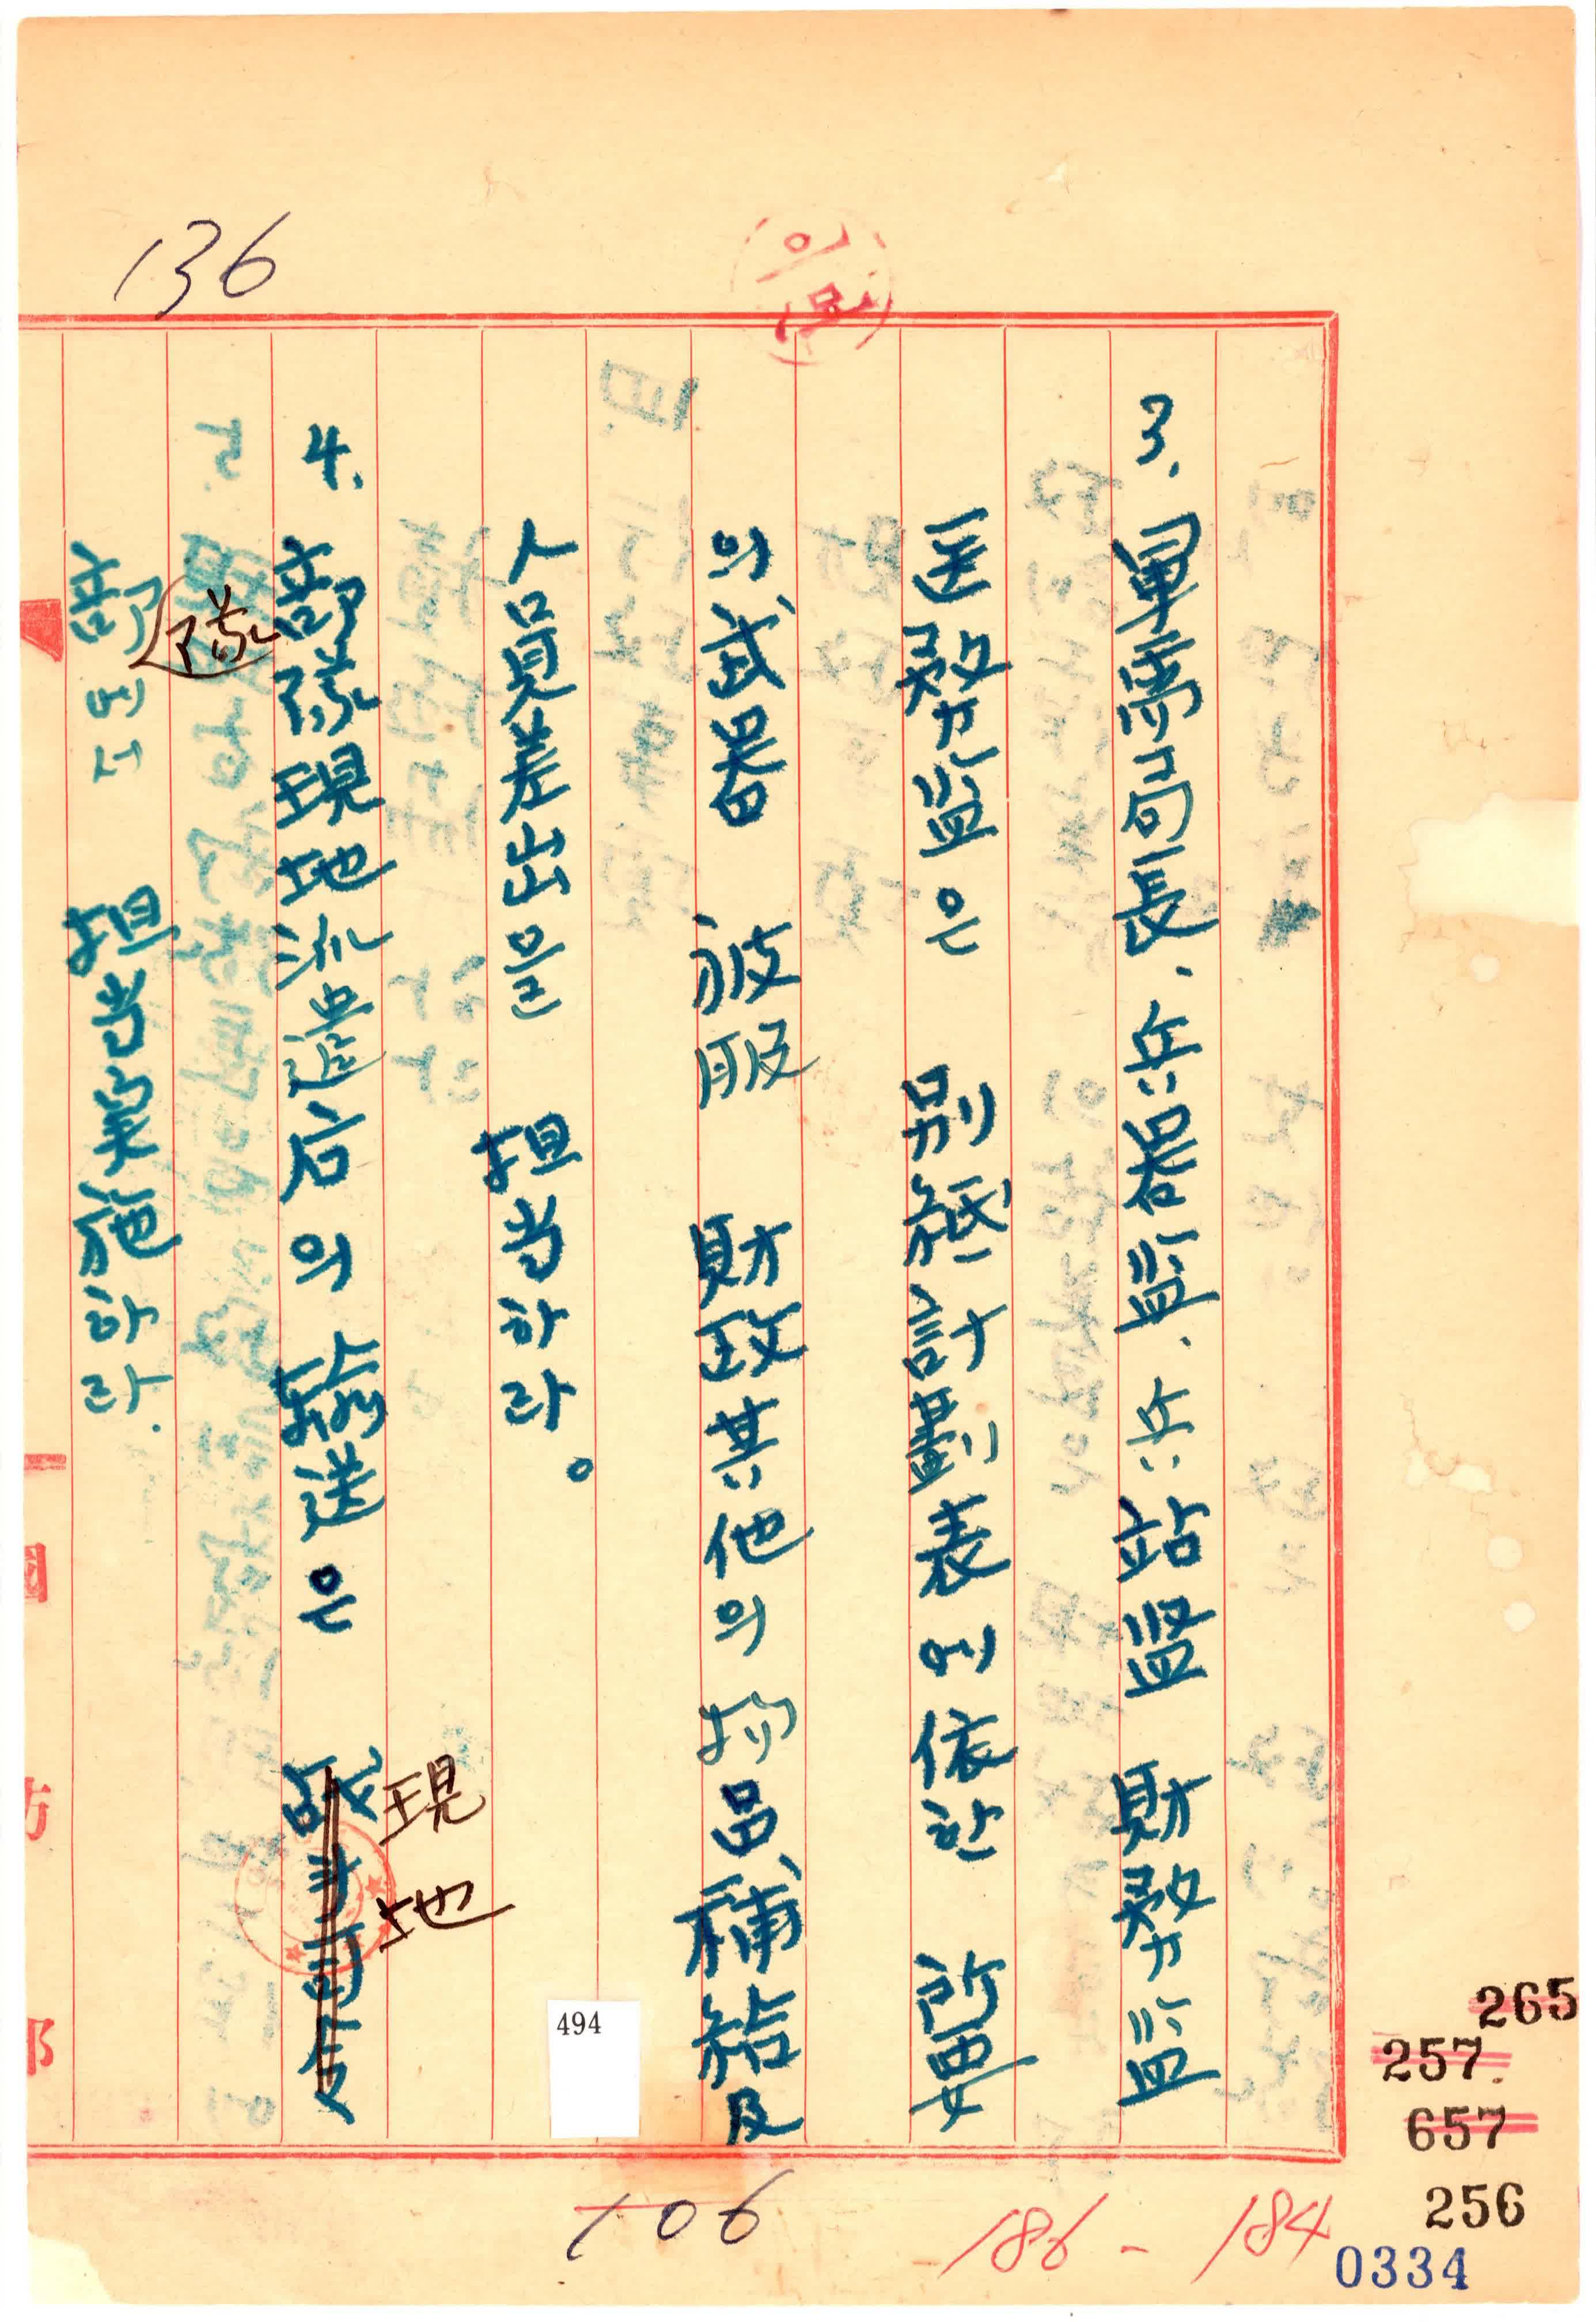 136
3. 軍需局長、兵器監、兵站監 財務監
医務監은 別紙計劃表에依한 所要
의武器 被服 財政其他의 物品補給及
人員差出을 担当하라。
4. 部隊現地派遣后의 輸送은
現地
部隊에서 担当実施하라.
494
106
186-184
265
257
657
256
0334
國
防
部